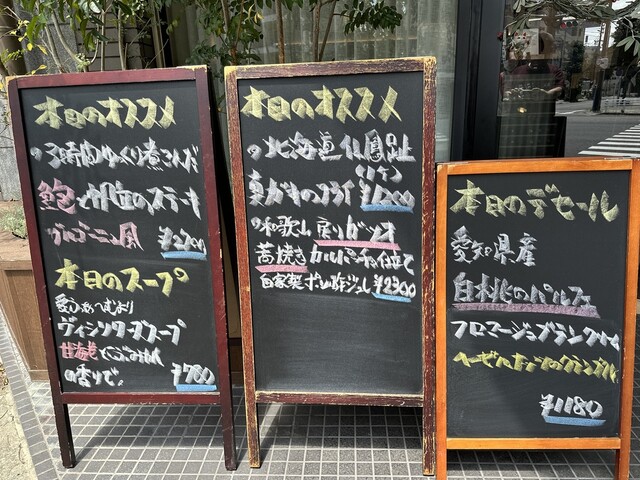 本日のオススメ
3時間ゆっくり煮こんだ
鮑と大根のステーキ
ブルゴーニュ風
本日のスープ
ヴィシソワーズスープ
甘海老と
の香りで。 ¥700
本日のオススメ
北海道 仙鳳趾
真がきのフライ
和歌山 戻りガツオ
藁焼き カルパッチョ仕立て
自家製ポン酢ジュレ ¥2300
本日のデセール
愛知県産
白桃のパルフェ
フロマージュブラン
ヘーゼルナッツのクランブル
¥1180